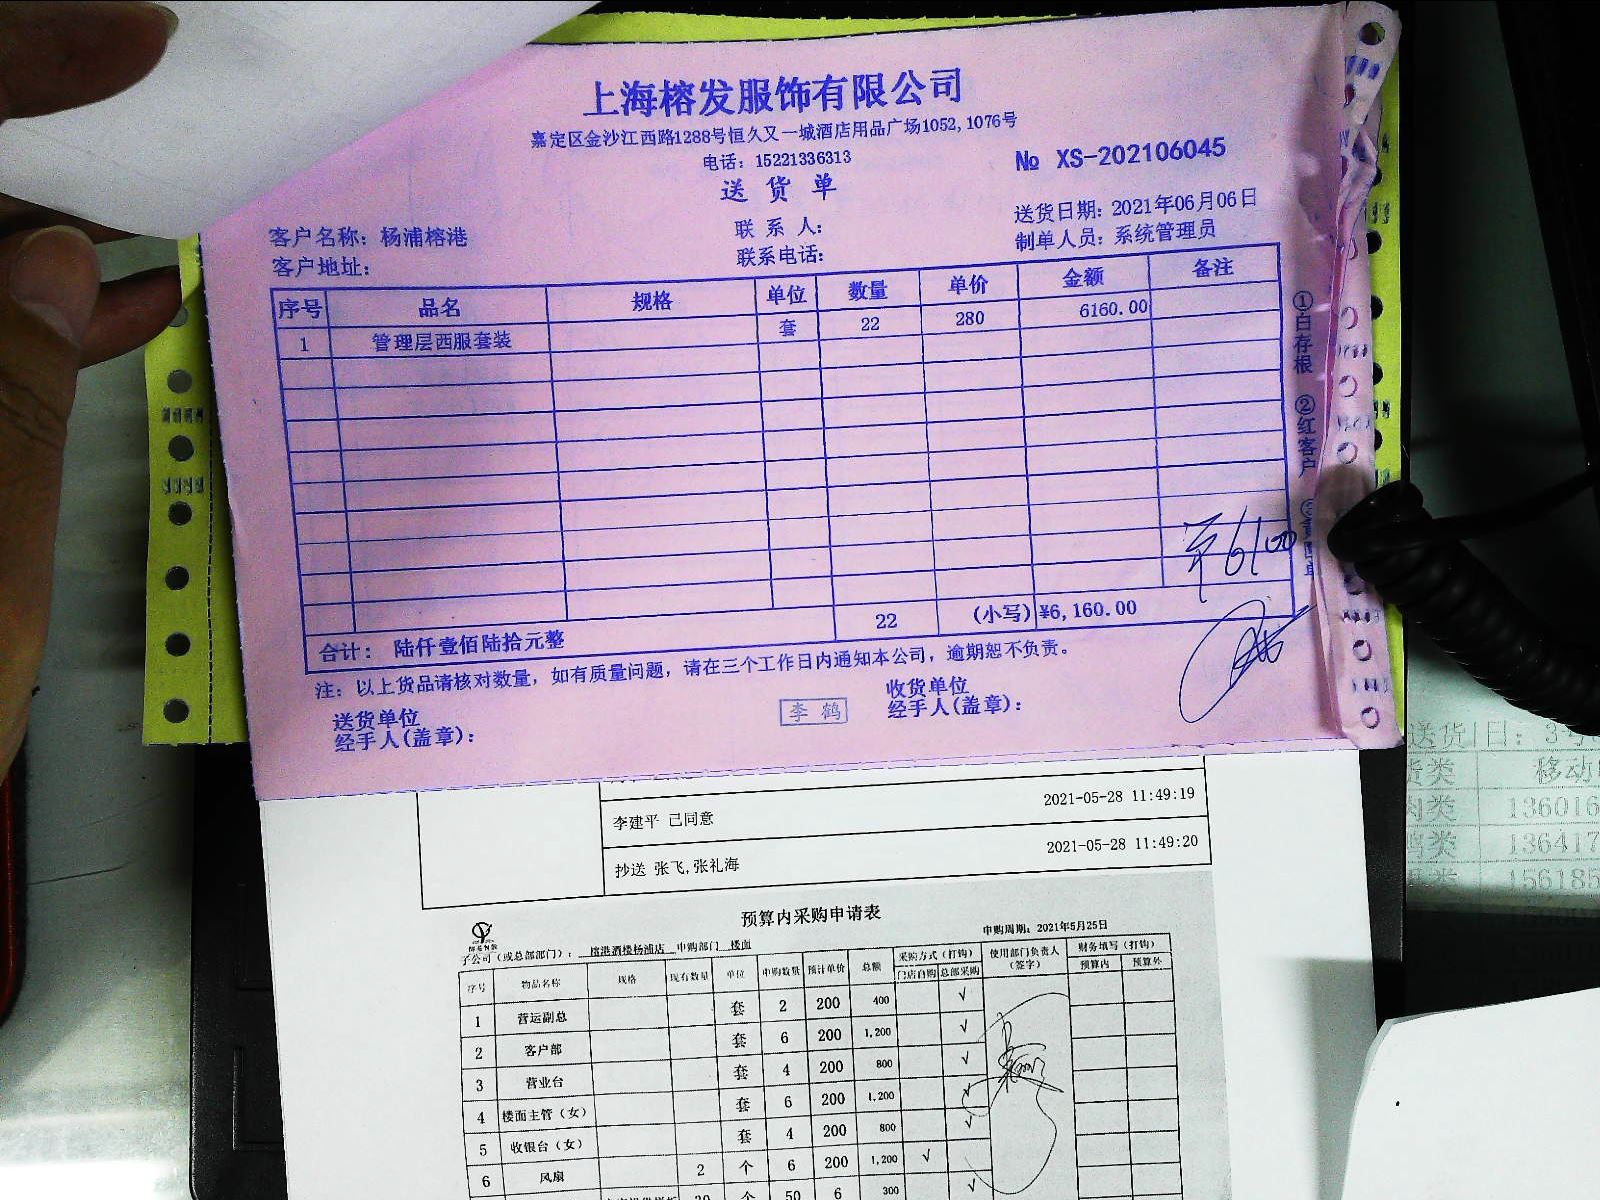 上海榕发服饰有限公司
嘉定区金沙江西路1288号恒久又一城酒店用品广场1052,1076号
电话：15221336313
№ XS-202106045
送 货 单
客户名称：杨浦榕港
联 系 人：
送货日期：2021年06月06日
客户地址：
联系电话：
制单人员：系统管理员
序号 品名 规格 单位 数量 单价 金额 备注
1 管理层西服套装 套 22 280 6160.00
①白存根 ②红客户
合计： 陆仟壹佰陆拾元整 22 (小写) ¥6,160.00
注：以上货品请核对数量，如有质量问题，请在三个工作日内通知本公司，逾期恕不负责。
送货单位
经手人(盖章)：
李 鹤
收货单位
经手人(盖章)：
李建平 已同意 2021-05-28 11:49:19
抄送 张飞,张礼海 2021-05-28 11:49:20
预算内采购申请表
申购周期：2021年5月25日
子公司（或总部部门）： 榕港酒楼杨浦店 申购部门 楼面
序号 物品名称 规格 现有数量 单位 申购数量 预计单价 总额 采购方式（打钩） 使用部门负责人（签字） 财务填写（打钩）
门店自购 总部采购 预算内 预算外
1 营运副总 套 2 200 400 √
2 客户部 套 6 200 1,200 √
3 营业台 套 4 200 800 √
4 楼面主管（女） 套 6 200 1,200 √
5 收银台（女） 套 4 200 800 √
6 风扇 2 个 6 200 1,200 √
个 50 6 300 √
送货日：3
移动
肉类 136016
类 136417
类 156185